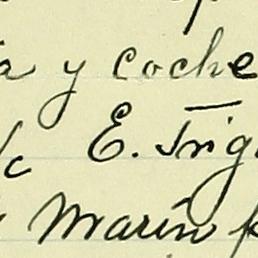 y coche
E. Trig
Marín